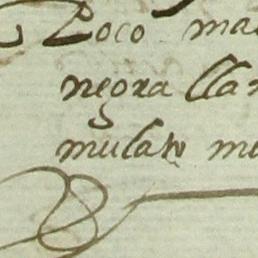 Poco ma
negra lla
mulato m